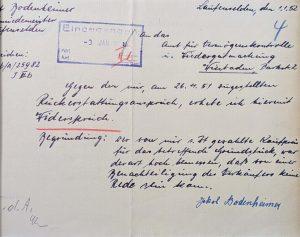 Bodenheimer
Laufenselden, d. 1.1.52
4
Eingegangen
-3. JAN.
An das
Amt für Vermögenskontrolle
u. Wiedergutmachung
Wiesbaden
Gegen den mir, am 26.4.51 zugestellten
Rückerstattungsanspruch, erhebe ich hiermit
Widerspruch.
Begründung: Der von mir s. Zt gezahlte Kaufpreis
für das betreffende Grundstück, war
derart hoch bemessen, daß von einer
Benachteiligung des Verkäufers keine
Rede sein kann.
Jakob Bodenheimer
z. d. A.